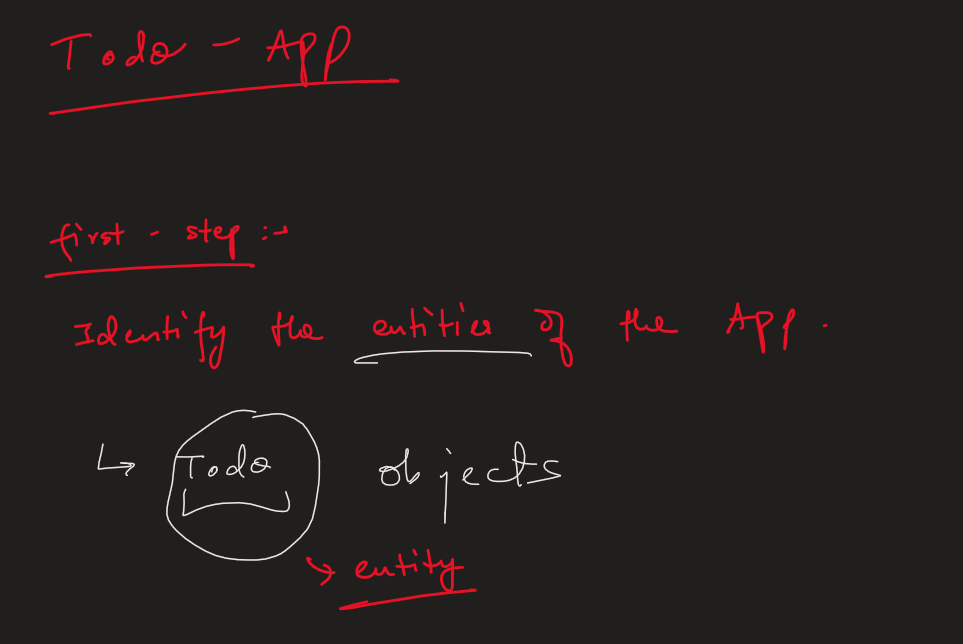 Todo - App
first - step :-
Identify the entities of the App.
↳ Todo objects
→ entity